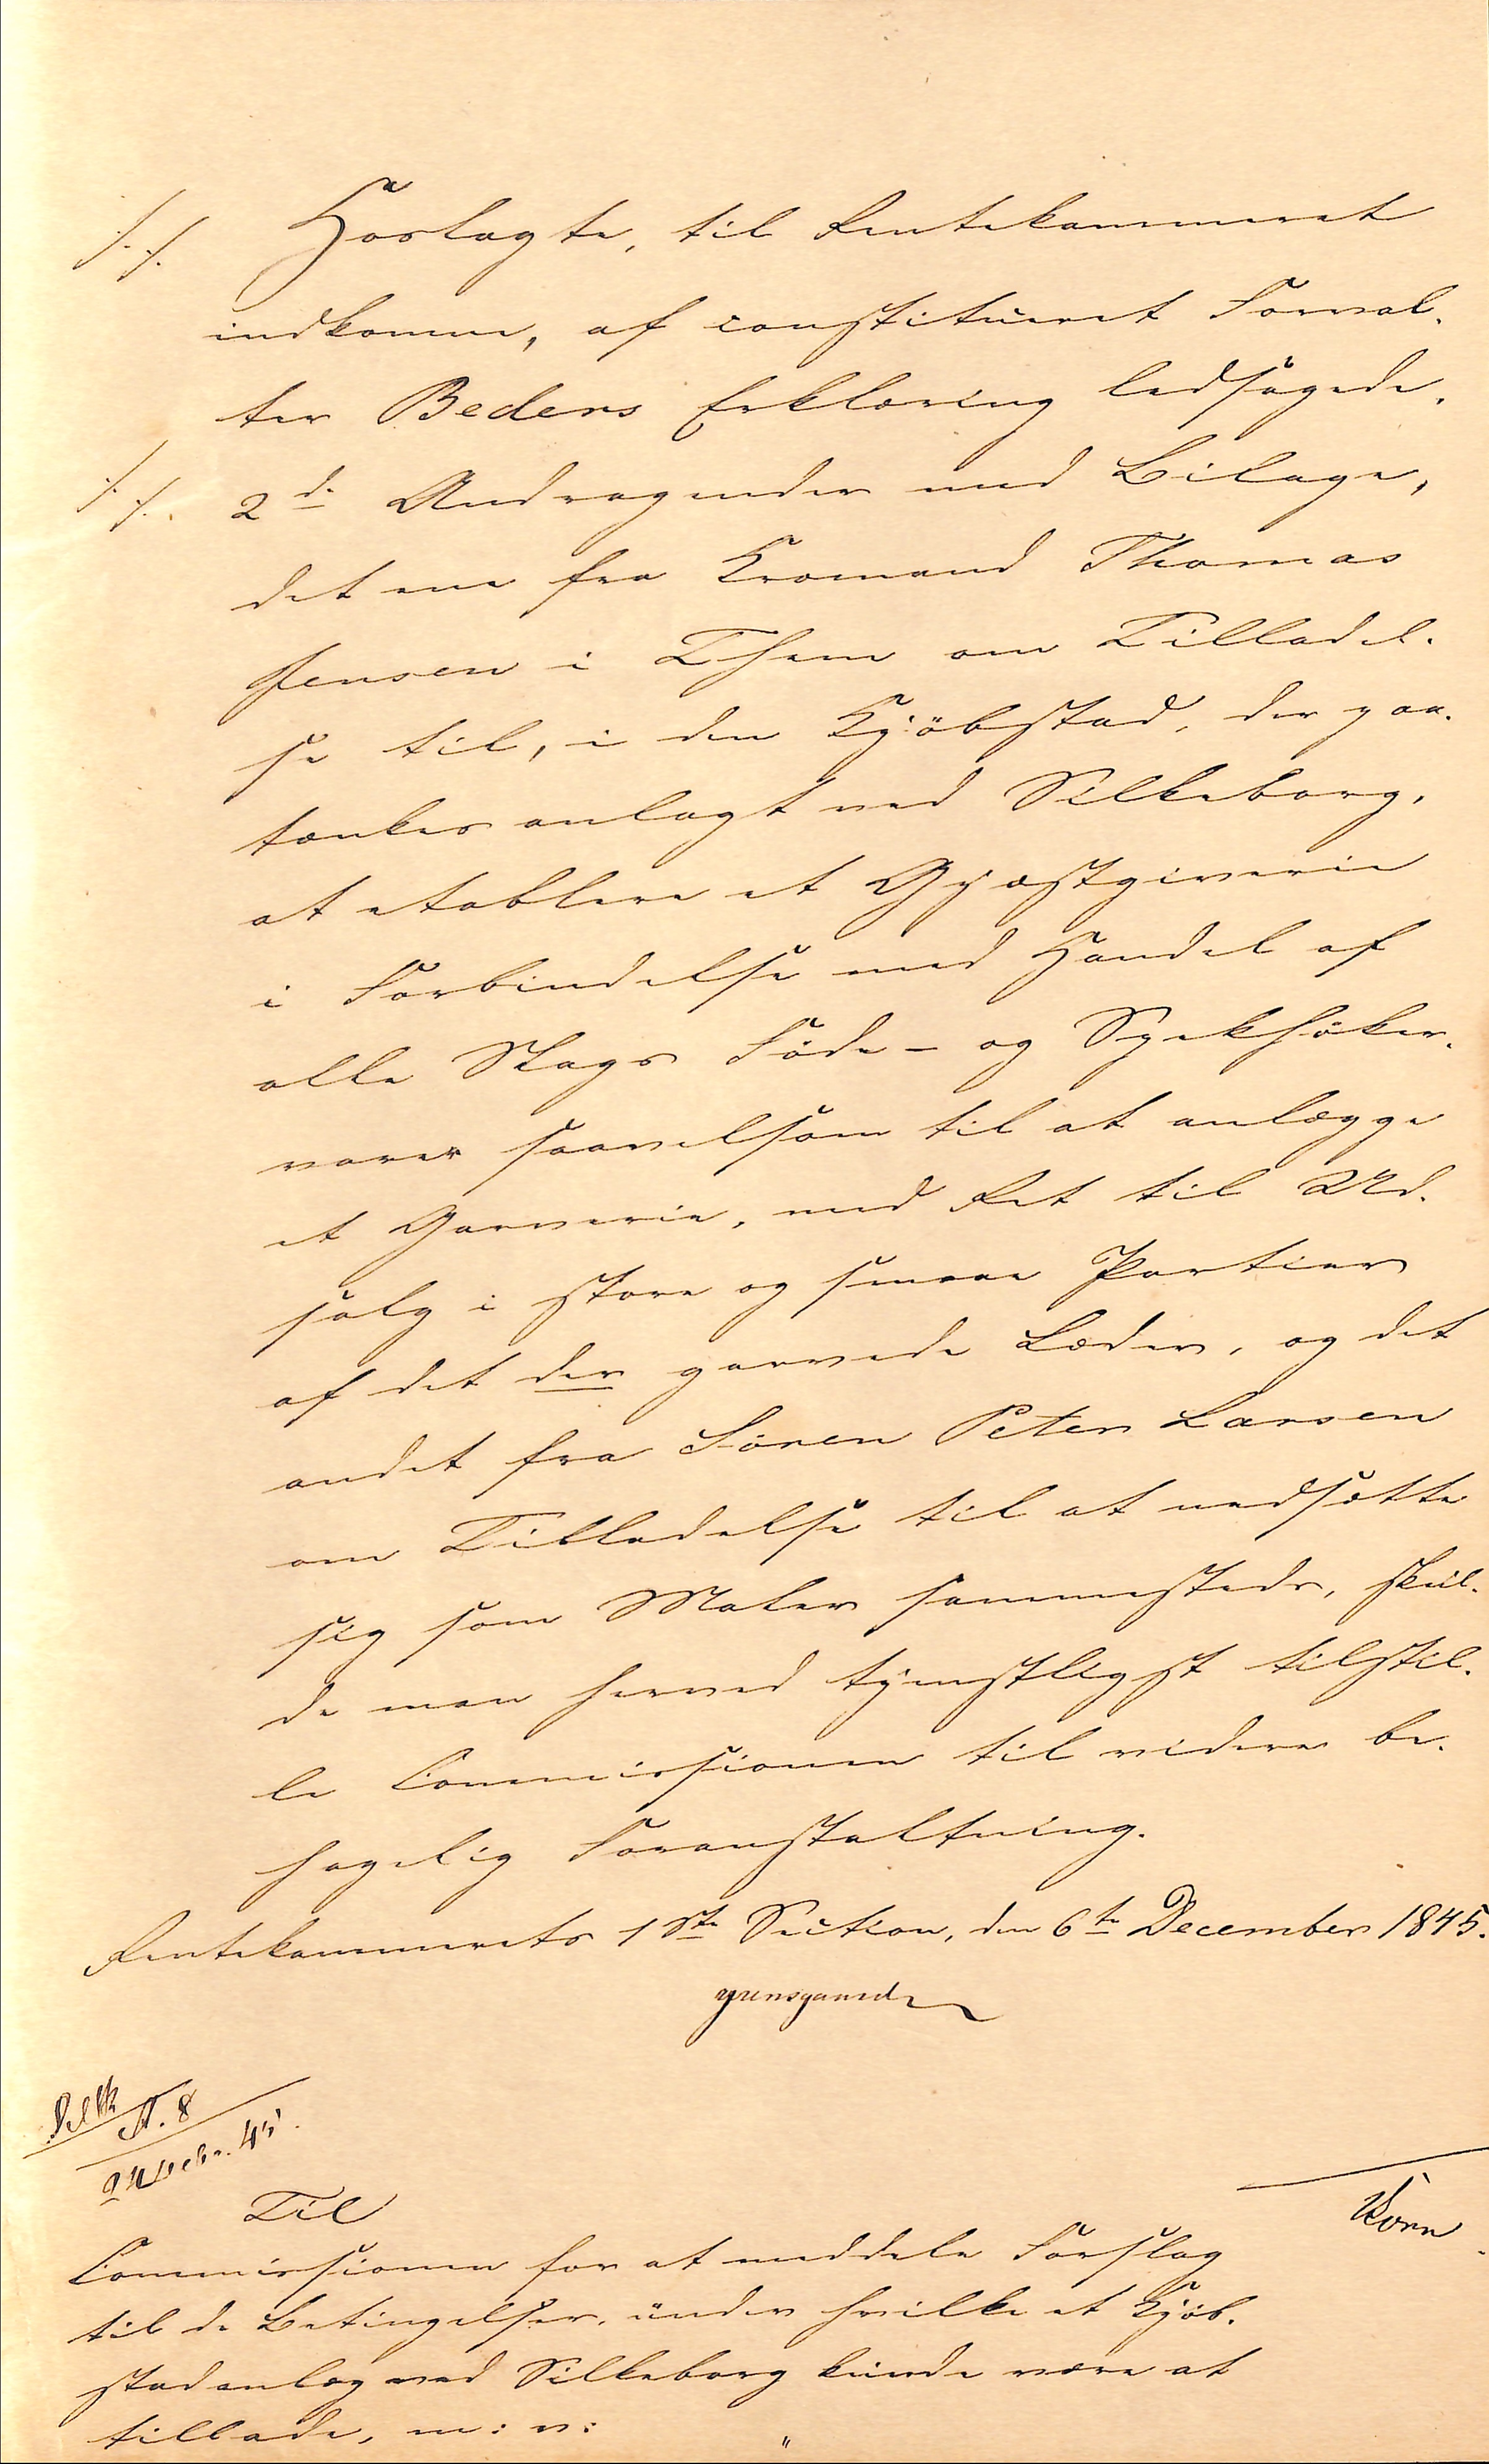 Hoslagte, til Rentekammeret
indkomne, af constitueret Forval-
ter Beders Erklæring ledsagede,
2de Andragender med Bilage,
det ene fra Kromand Thomas
Jensen i Them om Tilladel-
se til, i den Kjöbstad, der paa-
tænkes anlagt ved Silkeborg,
at etablere et Gjæstgiverie
i Forbindelse med Handel af
alle Slags Föde- og Spekhöker-
varer saavelsom til at anlægge
et Garverie, med Ret til Ud-
salg i store og smaae Partier
af det der garvede Læder, og det
andet fra Sören Peter Larsen
om Tilladelse til at nedsætte
sig som Maler sammesteds, skul-
de man herved tjenstligst tilstil-
le Commissionen til videre be-
hagelig Foranstaltning.
Rentekammerets 1ste Section, den 6te December 1845.
grensgaard
Silk
N. 8
Decbr. 45.
Til
Commissionen for at meddele Forslag
til de Betingelser, under hvilke et Kjöb-
stadanlæg ved Silkeborg kunde være at
tillade, m: v: